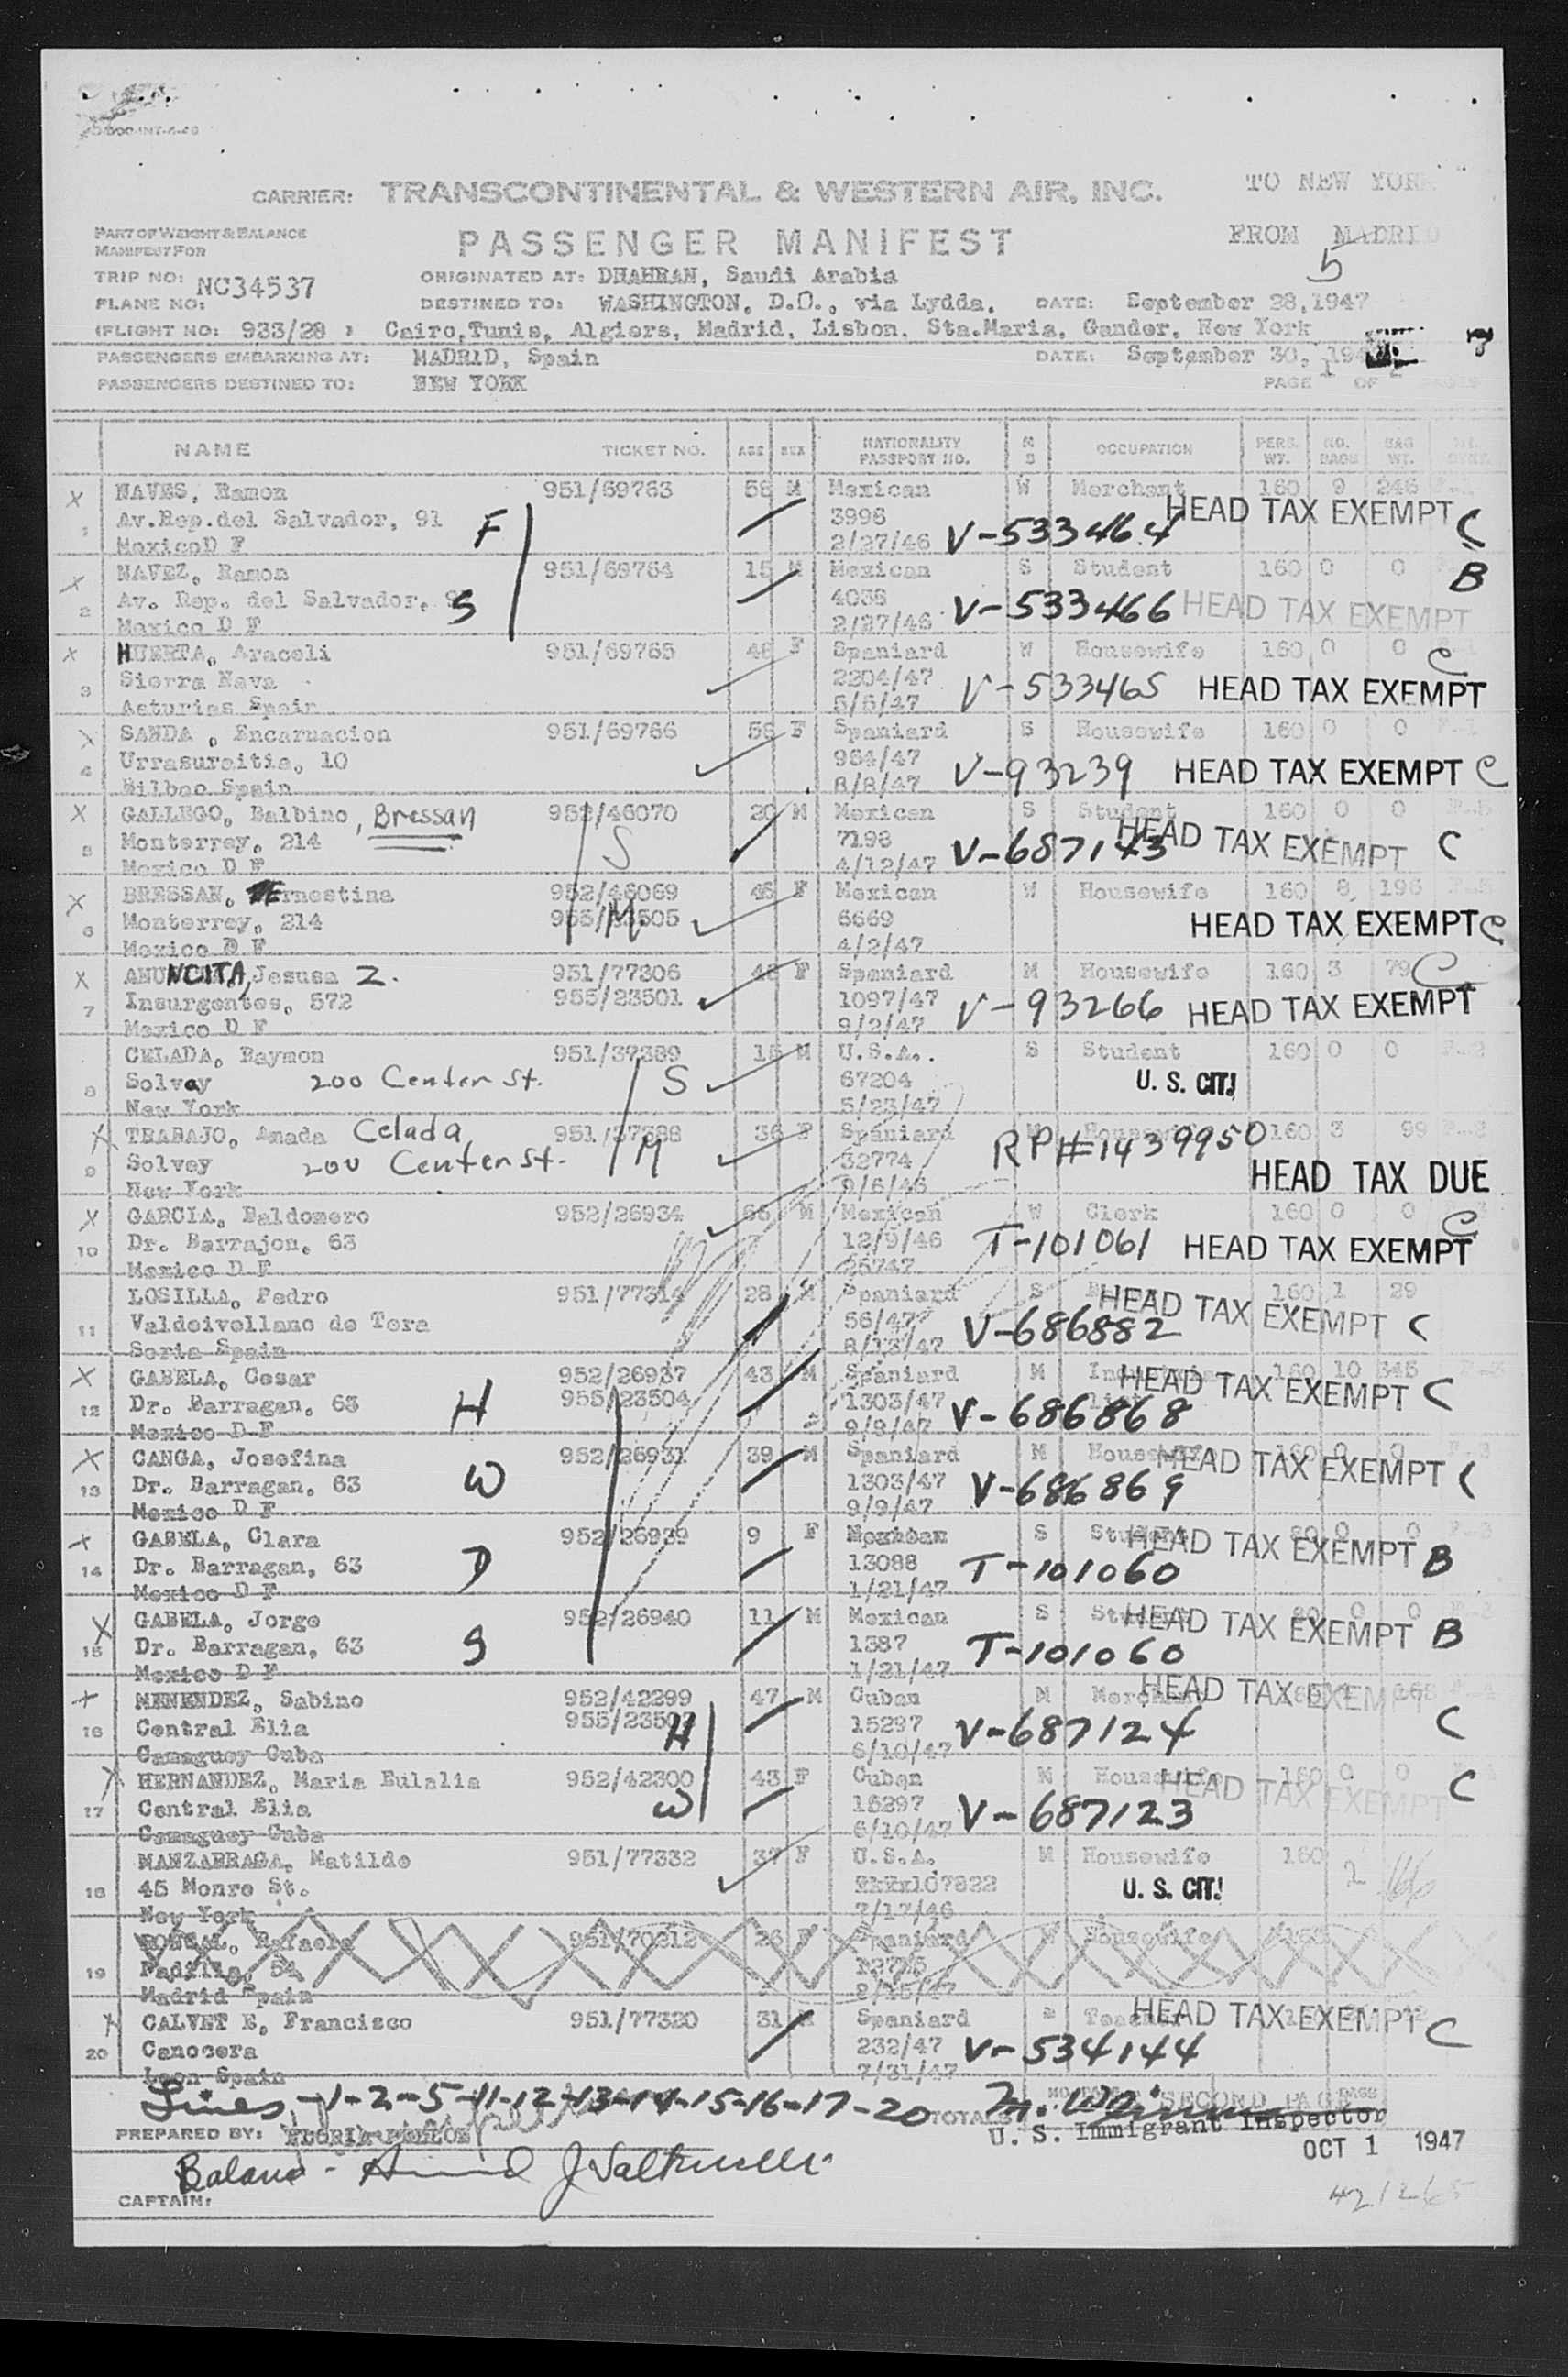 CARRIER: TRANSCONTINENTAL & WESTERN AIR, INC. TO NEW YORK
PART OF WEIGHT & BALANCE
MANIFEST FOR
PASSENGER MANIFEST FROM MADRID
5
TRIP NO: NC34537 ORIGINATED AT: DHAHRAN, Saudi Arabia
PLANE NO: DESTINED TO: WASHINGTON, D.C., via Lydda, DATE: September 28, 1947
(FLIGHT NO: 933/28 ) Cairo, Tunis, Algiers, Madrid, Lisbon, Sta.Maria, Gander, New York
PASSENGERS EMBARKING AT: MADRID, Spain DATE: September 30, 194
PASSENGERS DESTINED TO: NEW YORK PAGE 1 OF 2
NAME TICKET NO. AGE SEX NATIONALITY PASSPORT NO. M S OCCUPATION PERS. WT. NO. BAGS BAG WT.
X NAVES, Ramon 951/69763 58 M Mexican W Merchant 160 9 246
1 Av.Rep.del Salvador, 91 F 3996 HEAD TAX EXEMPT C
Mexico D F 2/27/46 V-533464
X NAVEZ, Ramon 951/69764 15 M Mexican S Student 160 0 0 B
2 Av. Rep. del Salvador, S 4036
Mexico D F 2/27/46 V-533466 HEAD TAX EXEMPT
X HUERTA, Araceli 951/69765 48 F Spaniard W Housewife 160 0 0 C
3 Sierra Nava 2204/47
Asturias Spain 5/5/47 V-533465 HEAD TAX EXEMPT
X SANDA , Encarnacion 951/69766 58 F Spaniard S Housewife 160 0 0
4 Urrasureitia, 10 964/47
Bilbao Spain 8/8/47 V-93239 HEAD TAX EXEMPT C
X GALLEGO, Balbino, Bressan 952/46070 20 M Mexican S Student 160 0 0
5 Monterrey, 214 S 7198
Mexico D F 4/12/47 V-687143 HEAD TAX EXEMPT C
X BRESSAN, Ernestina 952/46069 46 F Mexican W Housewife 160 8 196
6 Monterrey, 214 M 6669
Mexico D F 4/2/47 HEAD TAX EXEMPT C
X ANUNCITA, Jesusa Z. 951/77306 F Spaniard M Housewife 160 3 79 C
7 Insurgentes, 572 955/23501 1097/47
Mexico D F 9/2/47 V-93266 HEAD TAX EXEMPT
CELADA, Raymon 951/37389 15 M U.S.A.. S Student 160 0 0
8 Solvay 200 Center St. S 67204 U. S. CIT!
New York 5/23/47
X TRABAJO, Amada Celada 951/37388 36 F Spaniard Housewife 160 3 99
9 Solvey 200 Center St. M 32774 RP#1439950
New York HEAD TAX DUE
X GARCIA, Baldomero 952/26934 M Mexican W Clerk 160 0 0 C
10 Dr. Barrajon, 63 12/9/46
Mexico D F T-101061 HEAD TAX EXEMPT
LOSILLA, Pedro 951/77314 28 M Spaniard S 160 1 29
11 Valdeivellano de Tera 56/47
Soria Spain 8/13/47 V-686882 HEAD TAX EXEMPT C
X GABELA, Cesar 952/26937 43 M Spaniard M 160 10 345
12 Dr. Barragan, 63 H 955/23504 1303/47
Mexico D F 9/9/47 V-686868 HEAD TAX EXEMPT C
X CANGA, Josefina 952/26931 39 M Spaniard M Housewife 160 0 0
13 Dr. Barragan, 63 W 1303/47
Mexico D F 9/9/47 V-686869 HEAD TAX EXEMPT C
X GABELA, Clara 952/26939 9 F Mexican S Student 0 0
14 Dr. Barragan, 63 D 13088
Mexico D F 1/21/47 T-101060 HEAD TAX EXEMPT B
X GABELA, Jorge 952/26940 11 M Mexican S Student 0 0
15 Dr. Barragan, 63 S 1387
Mexico D F 1/21/47 T-101060 HEAD TAX EXEMPT B
X MENENDEZ, Sabino 952/42299 47 M Cuban M Merchant
16 Central Elia H 15297
Camaguey Cuba 6/10/47 V-687124 HEAD TAX EXEMPT C
X HERNANDEZ, Maria Eulalia 952/42300 43 F Cuban M Housewife 160 0 0
17 Central Elia W 15297
Camaguey Cuba 6/10/47 V-687123 HEAD TAX EXEMPT C
MANZARRAGA, Matilde 951/77332 37 F U.S.A. M Housewife 160 2
18 45 Monro St. 107822 U. S. CIT!
New York 7/17/46
951/70212 26 F Spaniard Housewife
19 Padilla, 54
Madrid Spain
X CALVET E, Francisco 951/77320 31 Spaniard
20 Canocera 232/47
Leon Spain 7/31/47 V-534144 HEAD TAX EXEMPT C
Lines -1-2-5-11-12-13-14-15-16-17-20 TOTALS SECOND PAGE
PREPARED BY: U. S. Immigrant Inspector
OCT 1 1947
CAPTAIN: